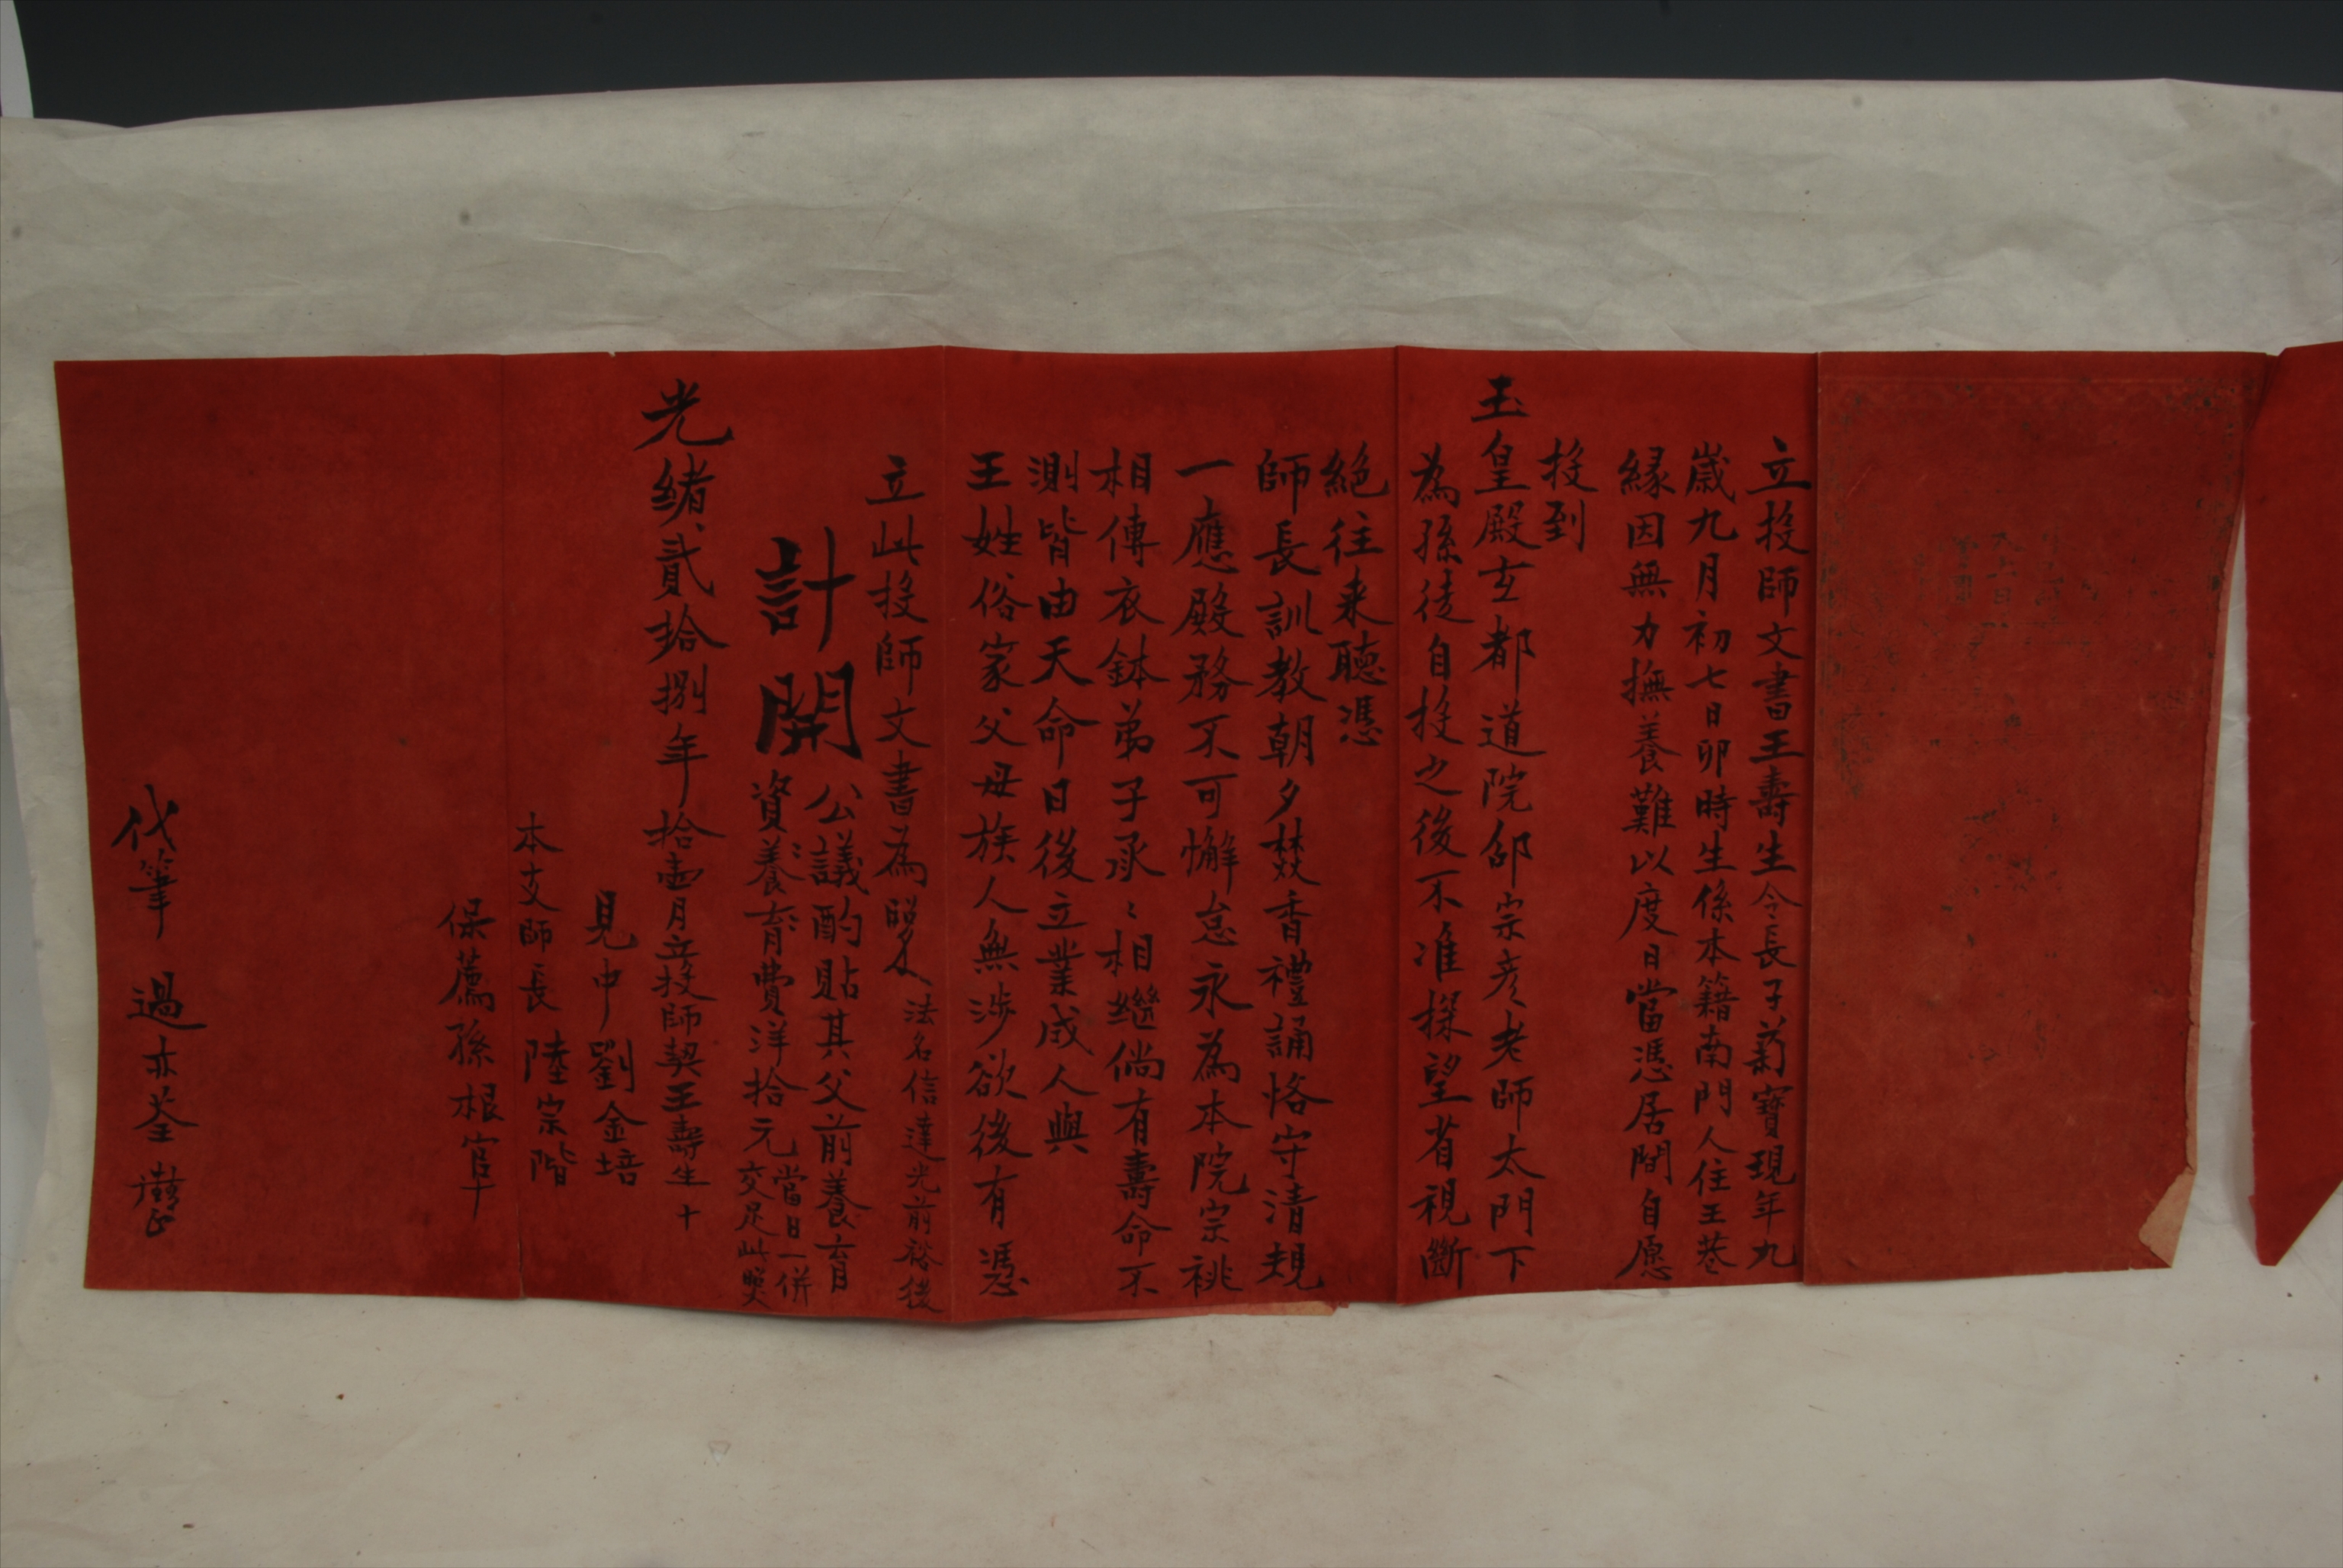 立投師文書王壽生今長子菊寶現年九
歲九月初七日卯時生係本籍南門人住王巷
緣因無力撫養難以度日當憑居間自愿
投到
玉皇殿玄都道院邰宗彦老師太門下
為孫徒自投之後不准探望省視斷
絕往来聽憑
師長訓教朝夕焚香禮誦恪守清規
一應殿務不可懈怠永為本院宗祧
相傳衣鉢弟子承〻相繼倘有壽命不
測皆由天命日後立業成人與
王姓俗家父母族人無涉欲後有憑
立此投師文書為照 法名信達光前裕後
計開 公議酌貼其父前養育
資養育費洋拾元 當日一併
交足此照
光緒貳拾捌年拾壹月立投師契王壽生十
見中劉金培
本支師長 陸宗階
保薦孫根官十
代筆 過亦荃